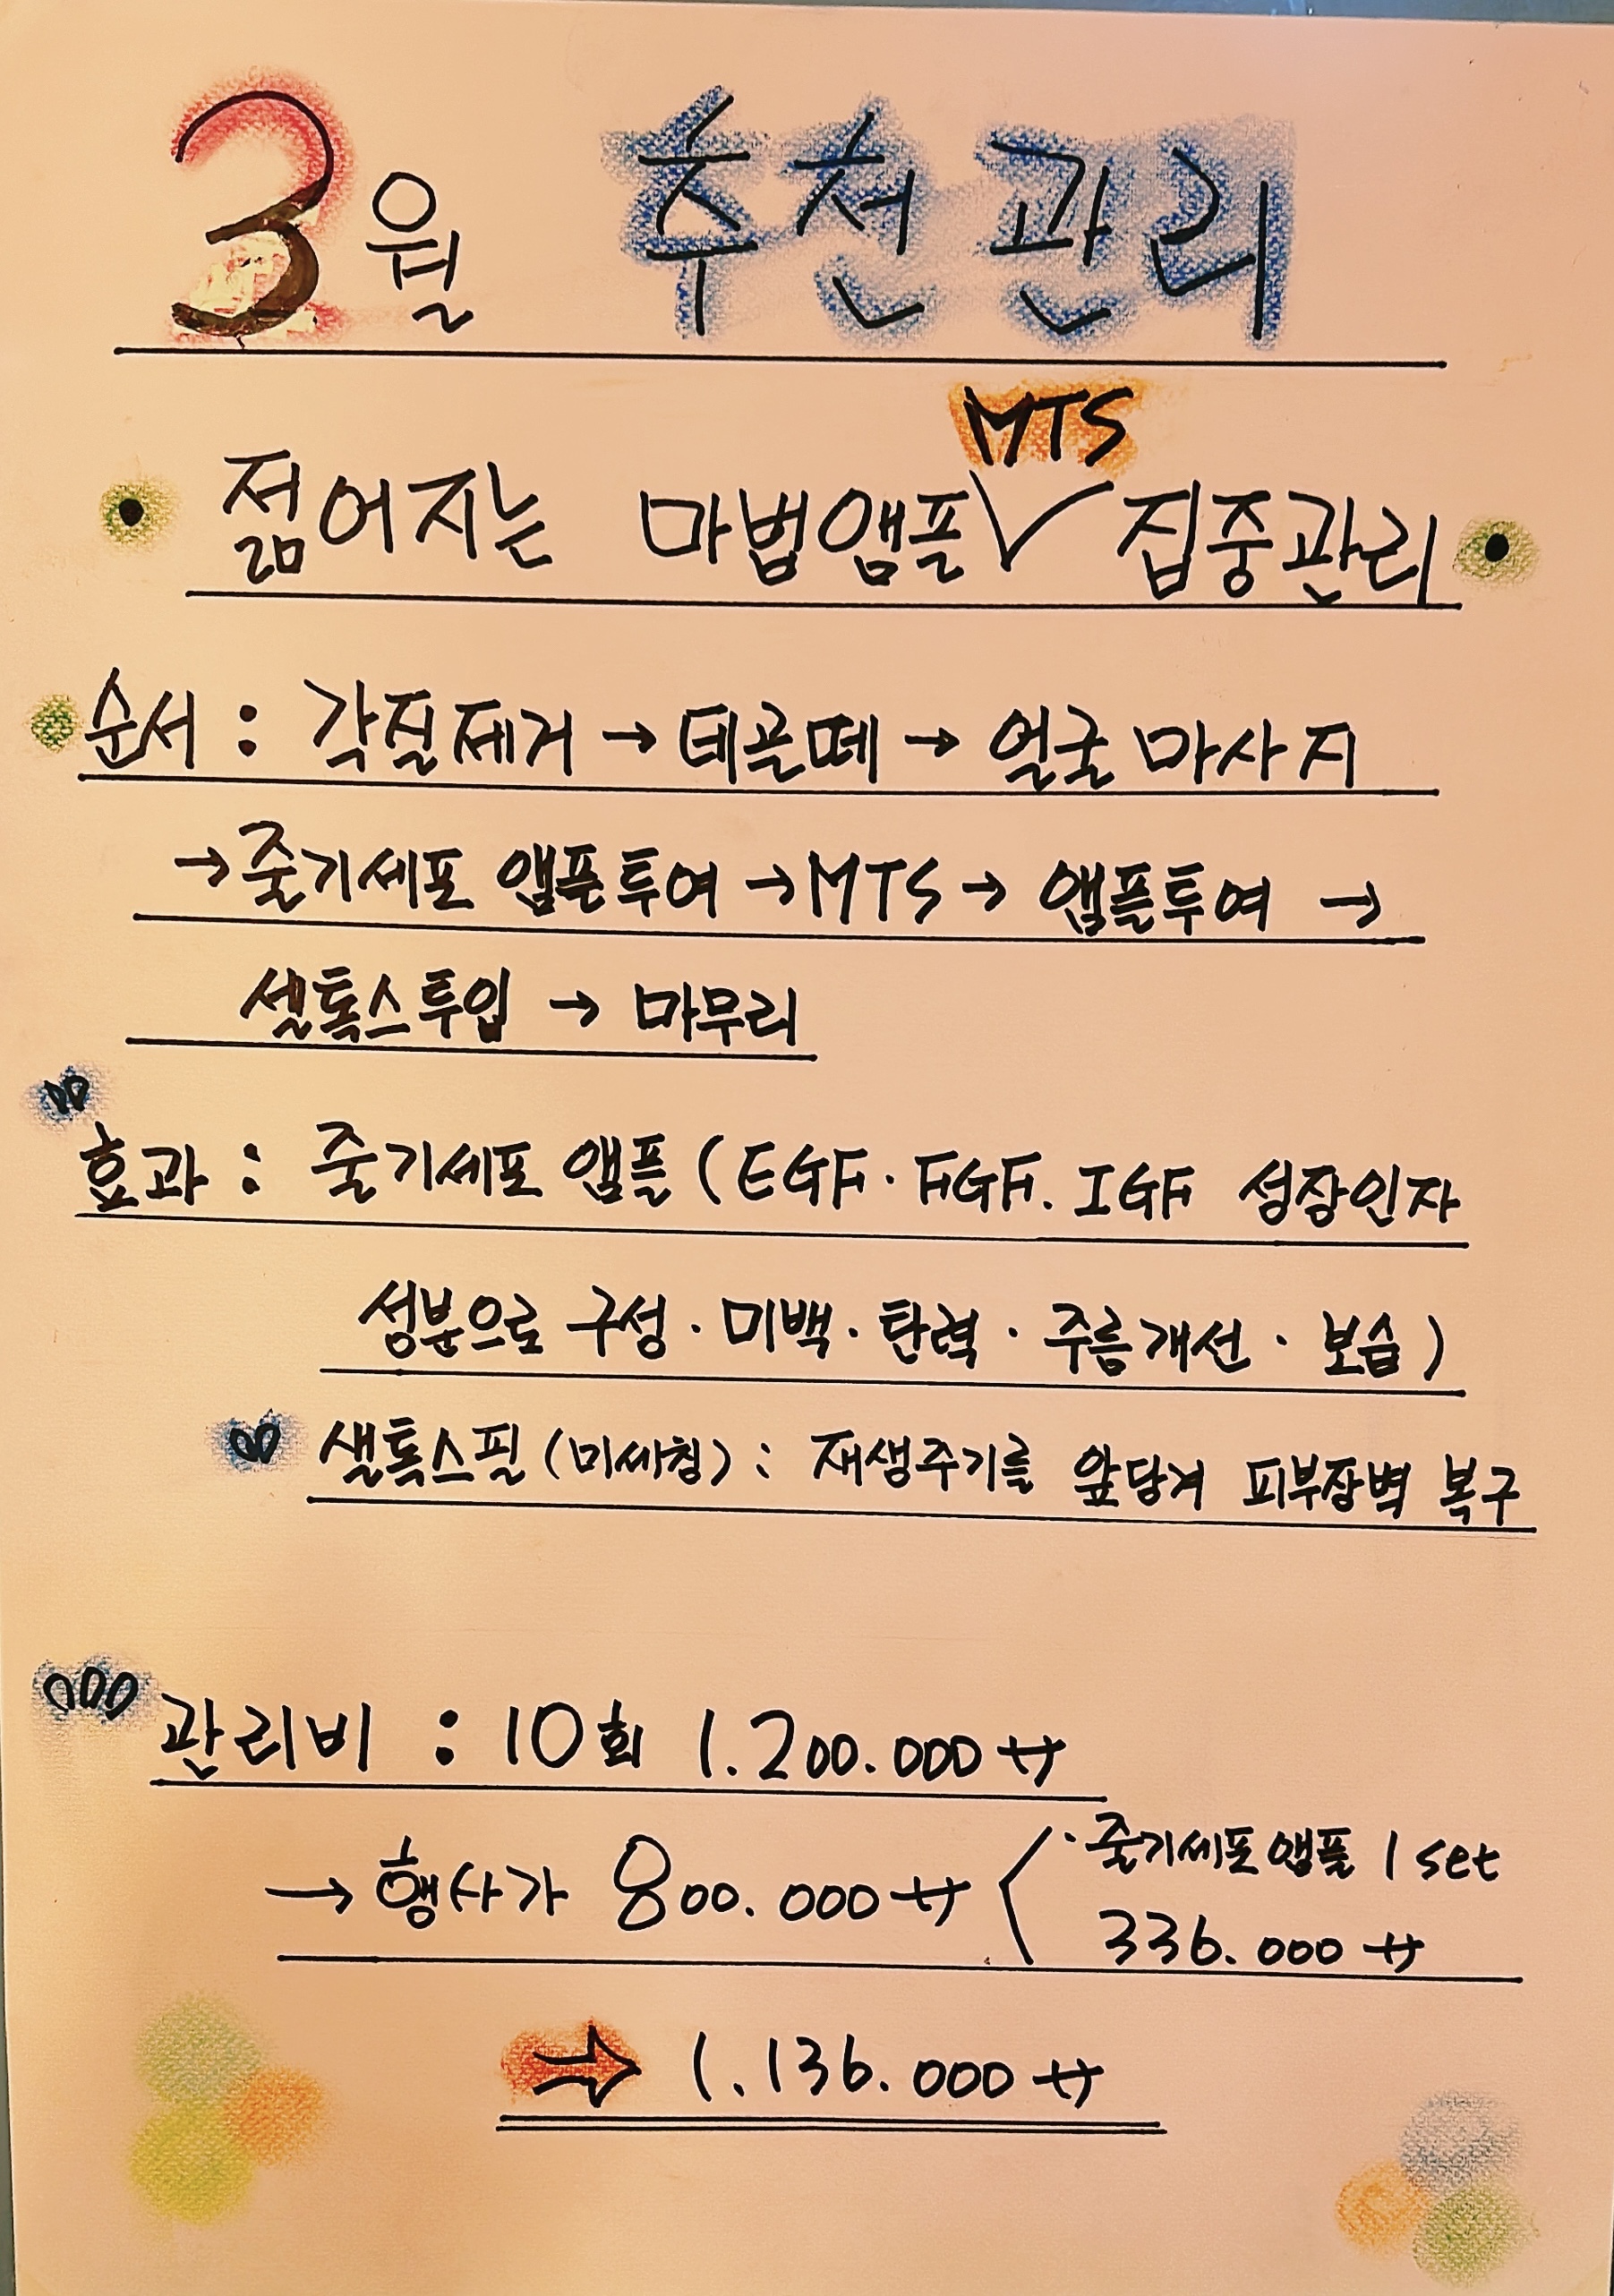 3월 추천관리
MTS
젊어지는 마법앰플 ∨ 집중관리
순서 : 각질제거 → 데콜떼 → 얼굴 마사지
→ 줄기세포 앰플투여 → MTS → 앰플투여 →
셀톡스투입 → 마무리
효과 : 줄기세포 앰플 (EGF · FGF. IGF 성장인자
성분으로 구성 · 미백 · 탄력 · 주름개선 · 보습)
샐톡스필 (미세침) : 재생주기를 앞당겨 피부장벽 복구
관리비 : 10회 1.200.000 ₩
→ 행사가 800.000 ₩
· 줄기세포 앰플 1 set
336.000 ₩
⇒ 1.136.000 ₩